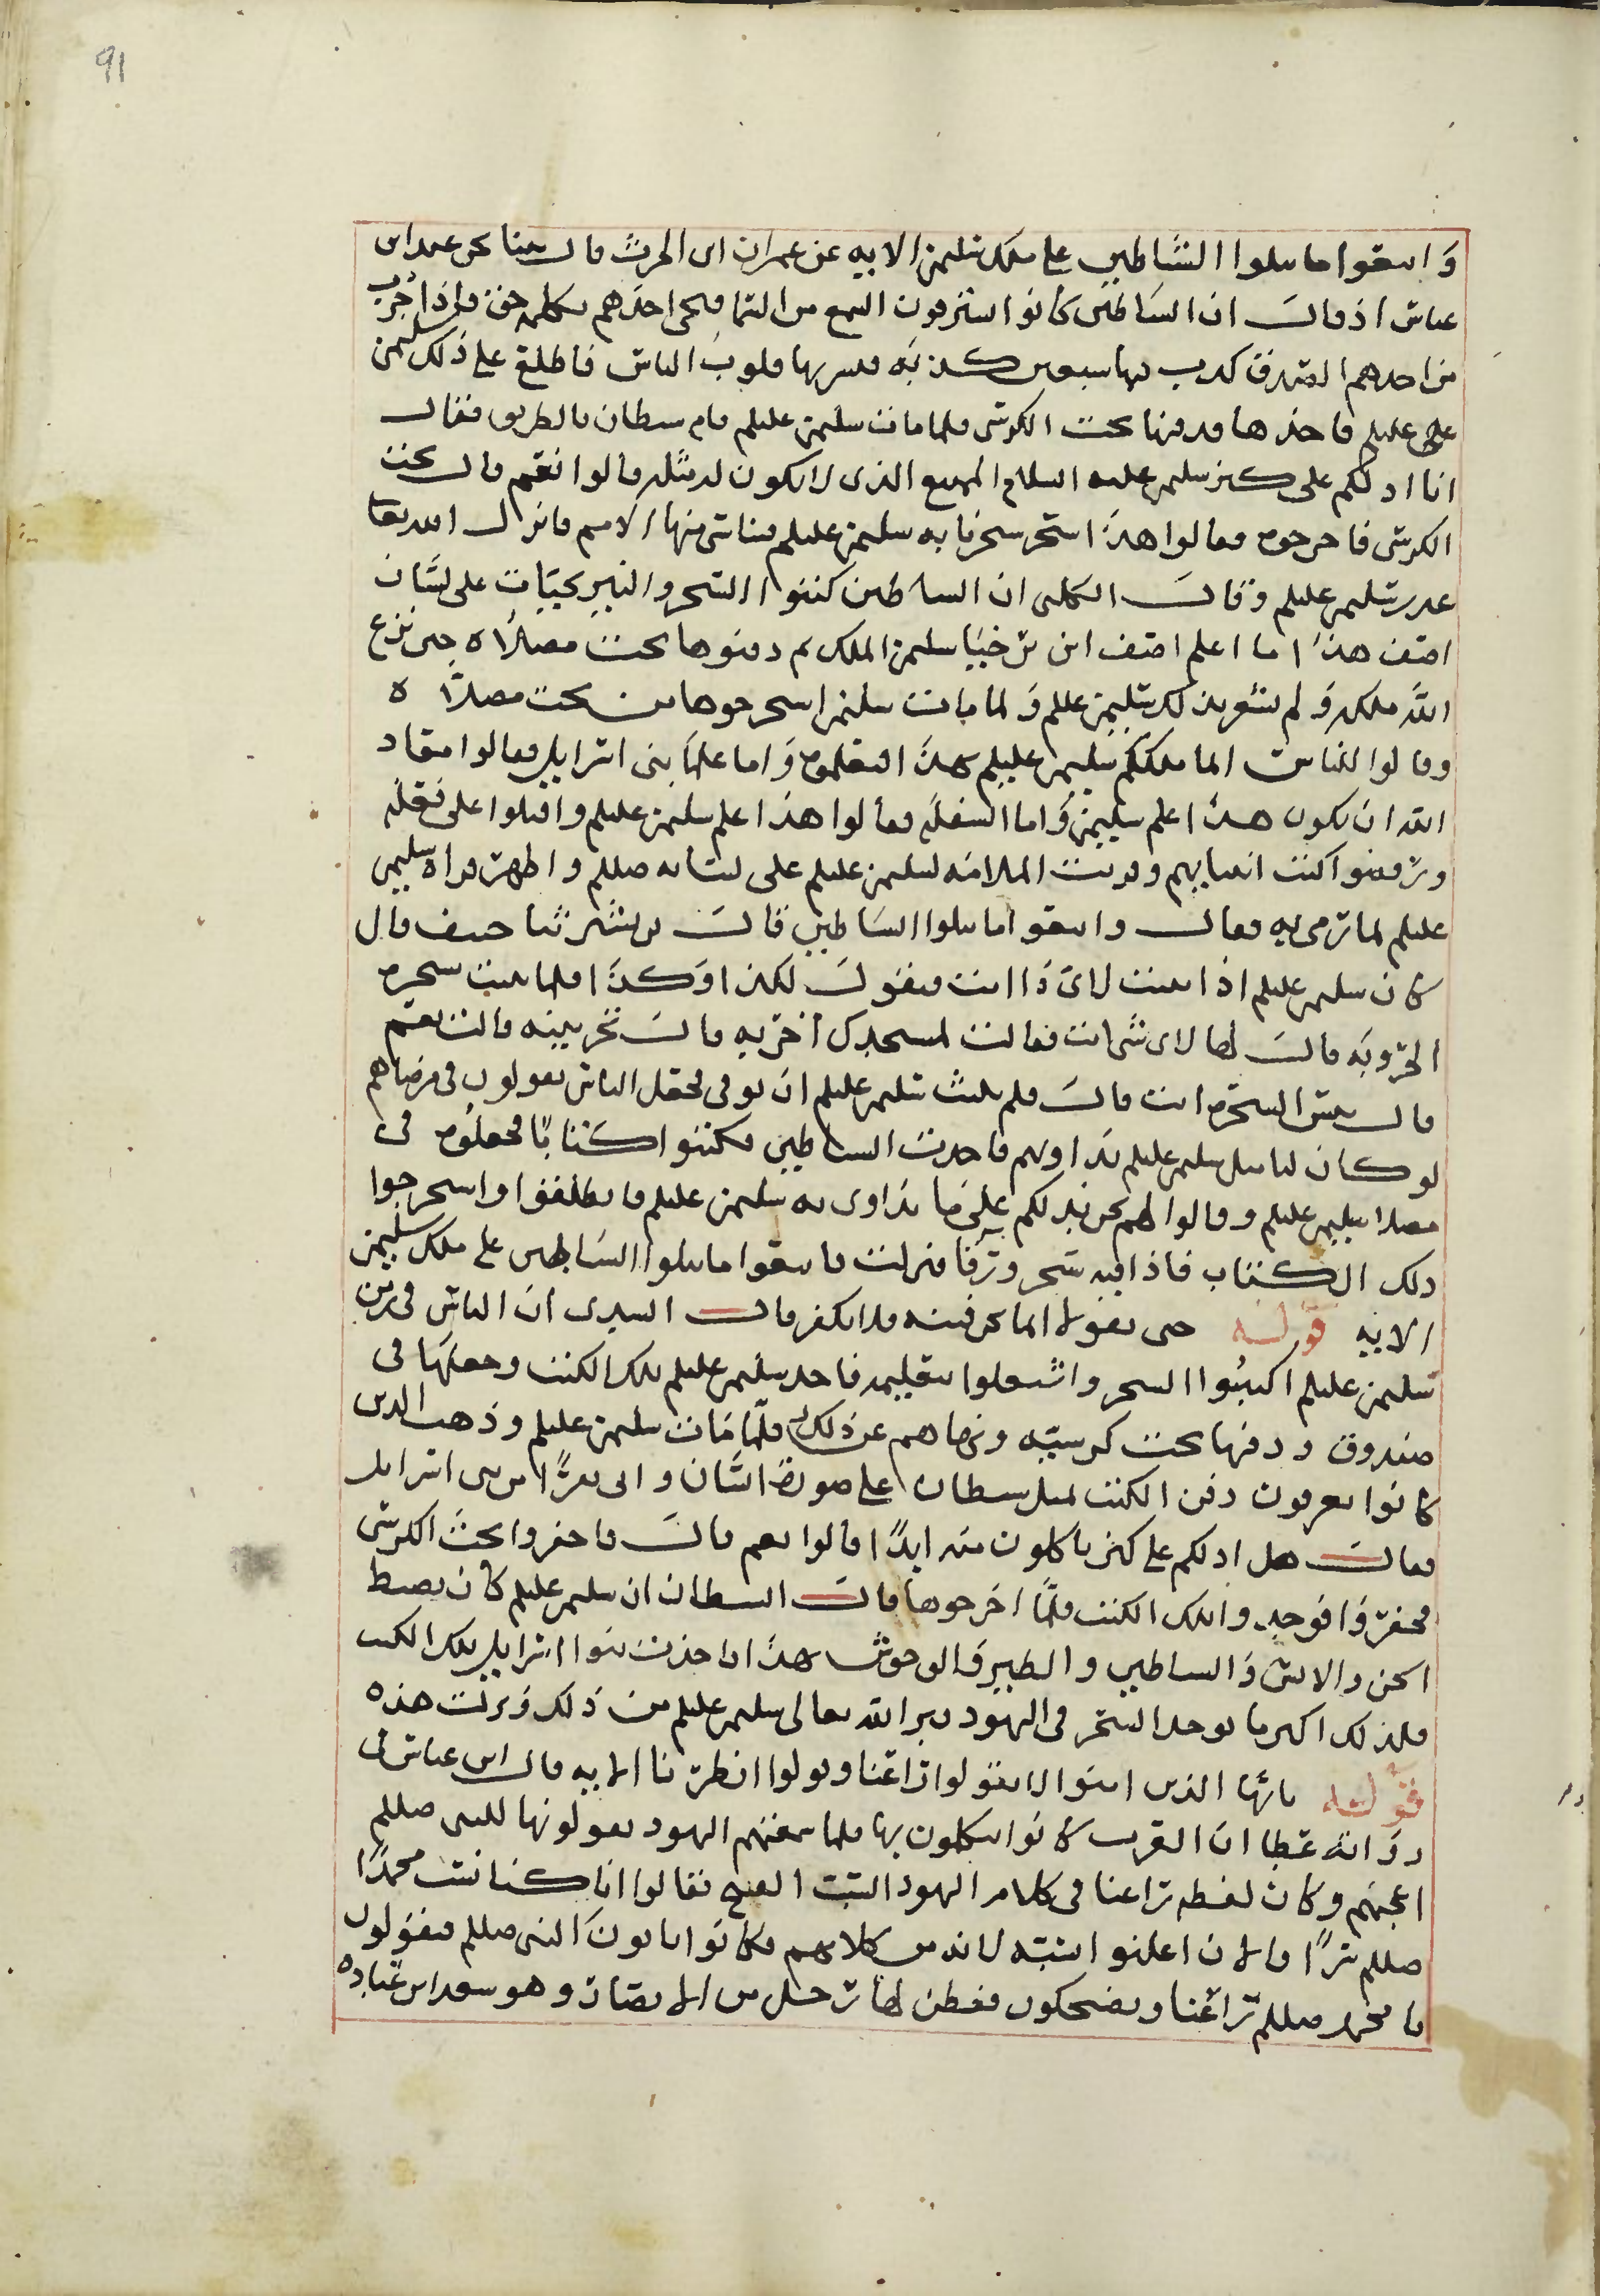 91
واتبعوا ما تتلوا الشياطين على ملك سليمن الايه عن عمران ابن الحرث قال بينا نحن عند ابن
عباس اذ قال ان الشياطين كانوا يسترقون السمع من السما فيجى احدهم بكلمة حق فاذا جرب
من احدهم الصدق كذب معها سبعين كذبة فيسربها قلوب الناس فاطلع على ذلك سليمن
عليلم فاخذها فدفنها تحت الكرسى فلما مات سليمن عليلم قام شيطان بالطريق فقال
انا ادلكم على كنز سليمن عليه السلام المنيع الذى لا يكون له مثله قالوا نعم قال تحت
الكرسى فاخرجوه فقالوا هذا سحر سحرنا به سليمن عليلم فتناسخها الامم فانزل الله تعا
عذر سليمن عليلم وقال الكلبى ان الشياطين كتبوا السحر والنيرنجيات على لسان
اصف هذا ما علم اصف ابن برخيا سليمن الملك ثم دفنوها تحت مصلاه حين نزع
الله ملكه ولم يشعر بذلك سليمن عليلم ولما مات سليمن استخرجوها من تحت مصلاه
وقالوا للناس انما ملككم سليمن عليلم بهذا فتعلموه واما علما بنى اسرايل فقالوا معاذ
الله ان يكون هذا علم سليمن واما السفله فقالوا هذا علم سليمن عليلم واقبلوا على تعلمه
ورفضوا كتب انبيايهم وفشت الملامه لسليمن عليلم على لسانه صللم واظهر براة سليمن
عليلم لما رمى به فقال واتبعوا ما تتلوا الشياطين قال حصيف قال
كان سليمن عليلم اذا نبتت لاى دا انت فتقول لكذا وكذا فلما نبتت شجرة
الخروبه قال لها لاى شى انت فقالت لمسجدك اخربه قال تخربينه قالت نعم
قال بئس الشجرة انت قال فلم يلبث سليمن عليلم ان توفى فجعل الناس يقولون فى مرضاهم
لو كان لنا مثل سليمن عليلم يداويهم فاخذت الشياطين فكتبوا كتابا فجعلوه فى
مصلا سليمن عليلم وقالوا لهم نحن ندلكم على ما يداوى به سليمن عليلم فانطلقوا واستخرجوا
ذلك الكتاب فاذا فيه سحر ورقا فنزلت واتبعوا ما تتلوا الشياطين على ملك سليمن
الايه قوله حتى يقولا انما نحن فتنه فلا تكفر قال السدى ان الناس فى زمن
سليمن عليلم اكتبوا السحر واشتغلوا بتعليمه فاخذ سليمن عليلم تلك الكتب وجعلها فى
صندوق ودفنها تحت كرسيه ونهاهم عن ذلك فلما مات سليمن عليلم وذهب الذين
كانوا يعرفون دفن الكتب تمثل شيطان على صورة انسان واتى نفرا من بنى اسرايل
فقال هل ادلكم على كنز تاكلون منه ابدا قالوا نعم قال فاحفروا تحت الكرسى
فحفروا فوجدوا تلك الكتب فلما اخرجوها قال الشيطان ان سليمن عليلم كان يضبط
الجن والانس والشياطين والطير والوحوش بهذا فاخذت بنوا اسرايل تلك الكتب
فلذلك اكثر ما يوجد السحر فى اليهود فبرا الله تعالى سليمن عليلم من ذلك ونزلت هذه
قوله يائها الذين امنوا لا تقولوا راعنا وقولوا انظرنا الايه قال ابن عباس فى
روايه عطا ان العرب كانوا يتكلمون بها فلما سمعتهم اليهود يقولونها للنبى صللم
اعجبهم وكان لفظه راعنا فى كلام اليهود السب القبيح فقالوا انا كنا نسب محمدا
صللم سرا فالان اعلنوا سبه لانه من كلامهم فكانوا ياتون النبى صللم فيقولون
يا محمد صللم راعنا ويضحكون ففطن لها رجل من الانصار وهو سعد ابن عباده